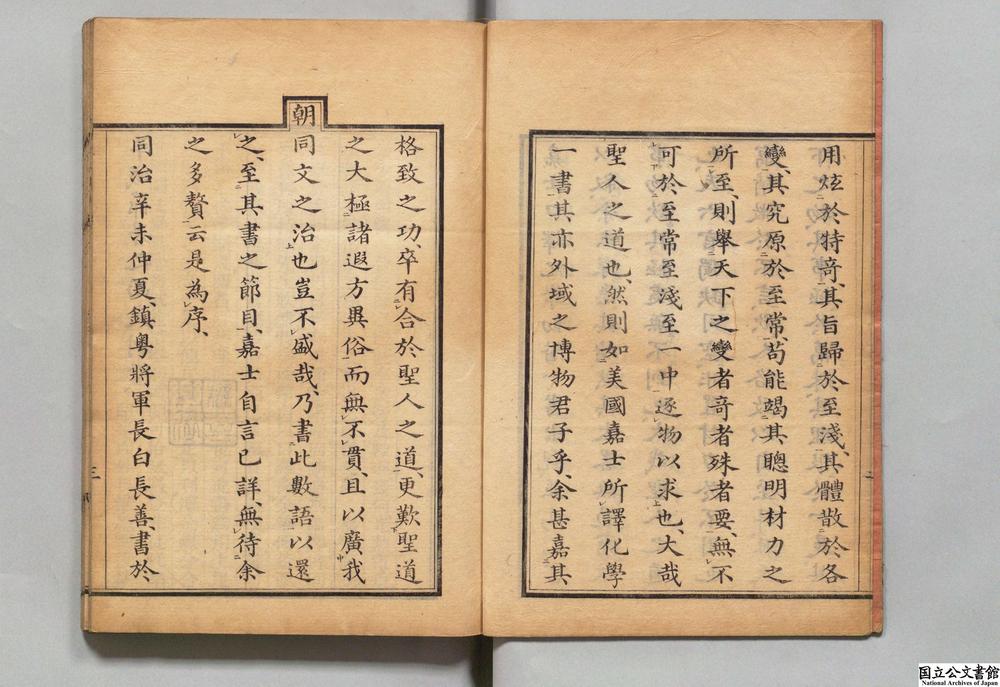 用炫於特奇、其旨歸於至淺、其體散於各
變、其究原於至常、苟能竭其聰明材力之
所至、則舉天下之變者奇者殊者要、無不
可於至常至淺至一中逐物以求也、大哉
聖人之道也、然則如美國嘉士所譯化學
一書、其亦外域之博物君子乎、余甚嘉其
格致之功、卒有合於聖人之道、更歎聖道
之大極諸遐方異俗而無不貫、且以廣我
朝
同文之治也豈不盛哉、乃書此數語以還
之、至其書之節目、嘉士自言已詳、無待余
之多贅云是為序、
同治辛未仲夏、鎮粵將軍長白長善、書於
二
三
国立公文書館
National Archives of Japan